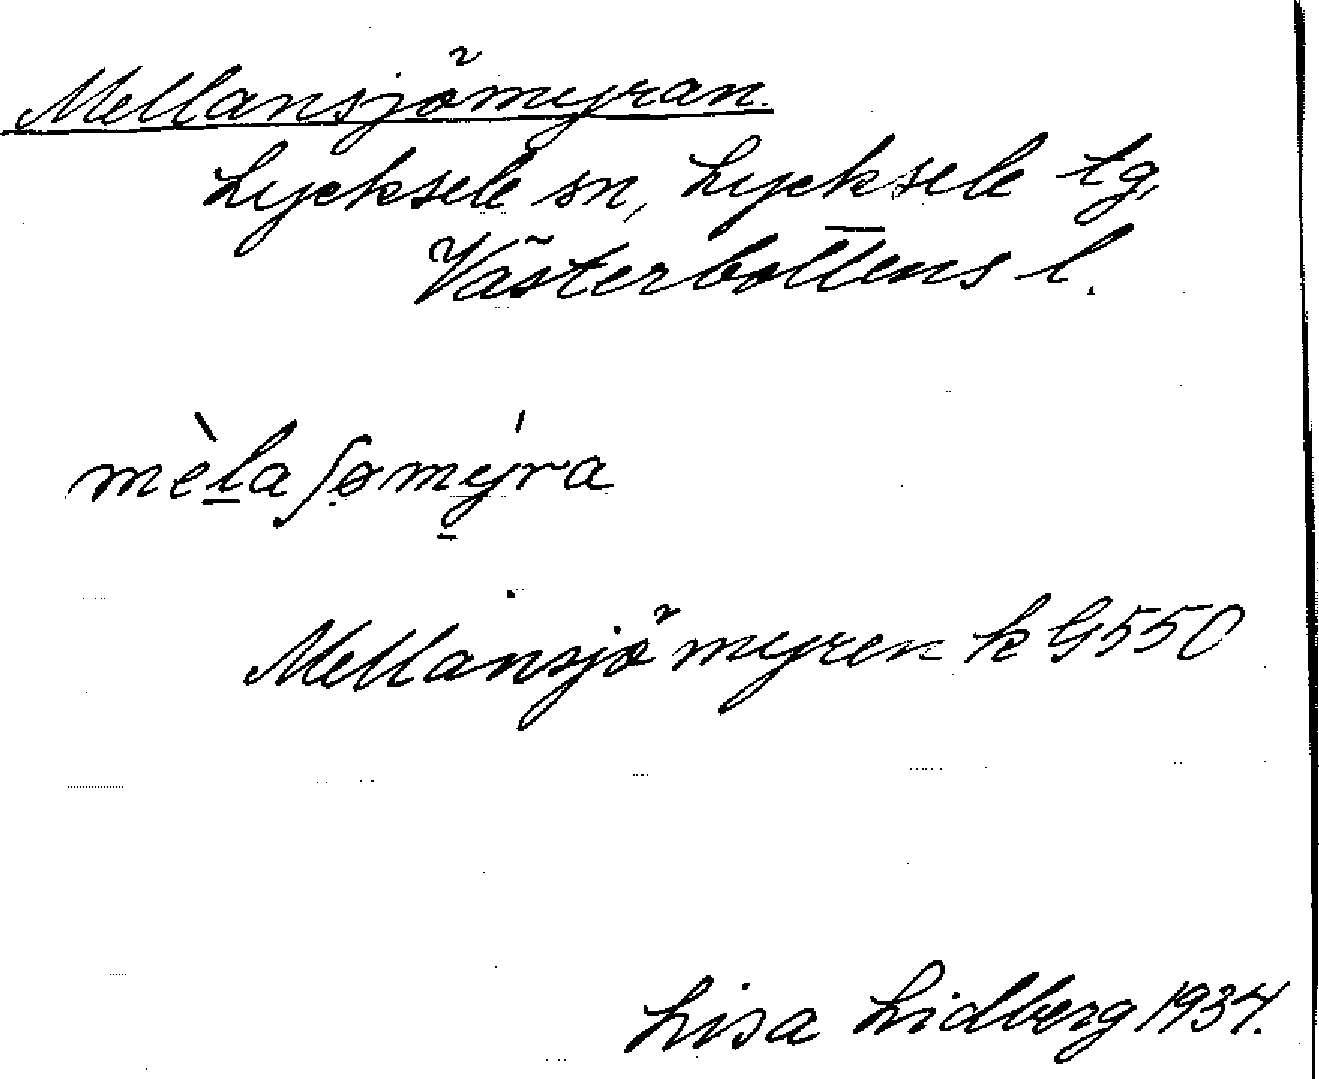 Mellansjömyran.
Lycksele sn, Lycksele tg,
Västerbottens l.
mèla∫ømýra
Mellansjömyren k G550
Lisa Lidberg 1934.